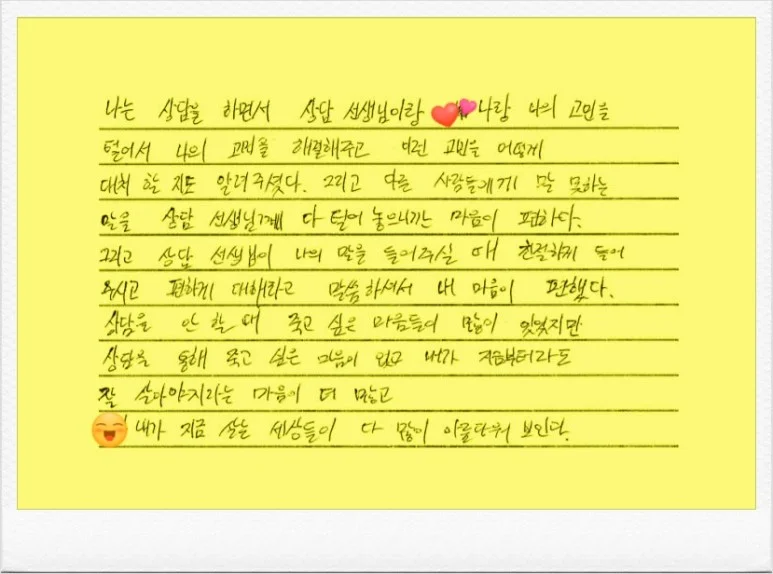 나는 상담을 하면서 상담 선생님이랑 나랑 나의 고민을
털어서 나의 고민을 해결해주고 이런 고민을 어떻게
대처 할 지도 알려주셨다. 그리고 다른 사람들에게 말 못하는
말을 상담 선생님께 다 털어 놓으니까는 마음이 편하다.
그리고 상담 선생님이 나의 말을 들어주실 때 친절하게 들어
주시고 편하게 대해라고 말씀하셔서 내 마음이 편했다.
상담을 안 할 때 죽고 싶은 마음들이 많이 있었지만
상담을 통해 죽고 싶은 마음이 없고 내가 지금부터라도
잘 살아야지라는 마음이 더 많고
내가 지금 사는 세상들이 다 많이 아름다워 보인다.